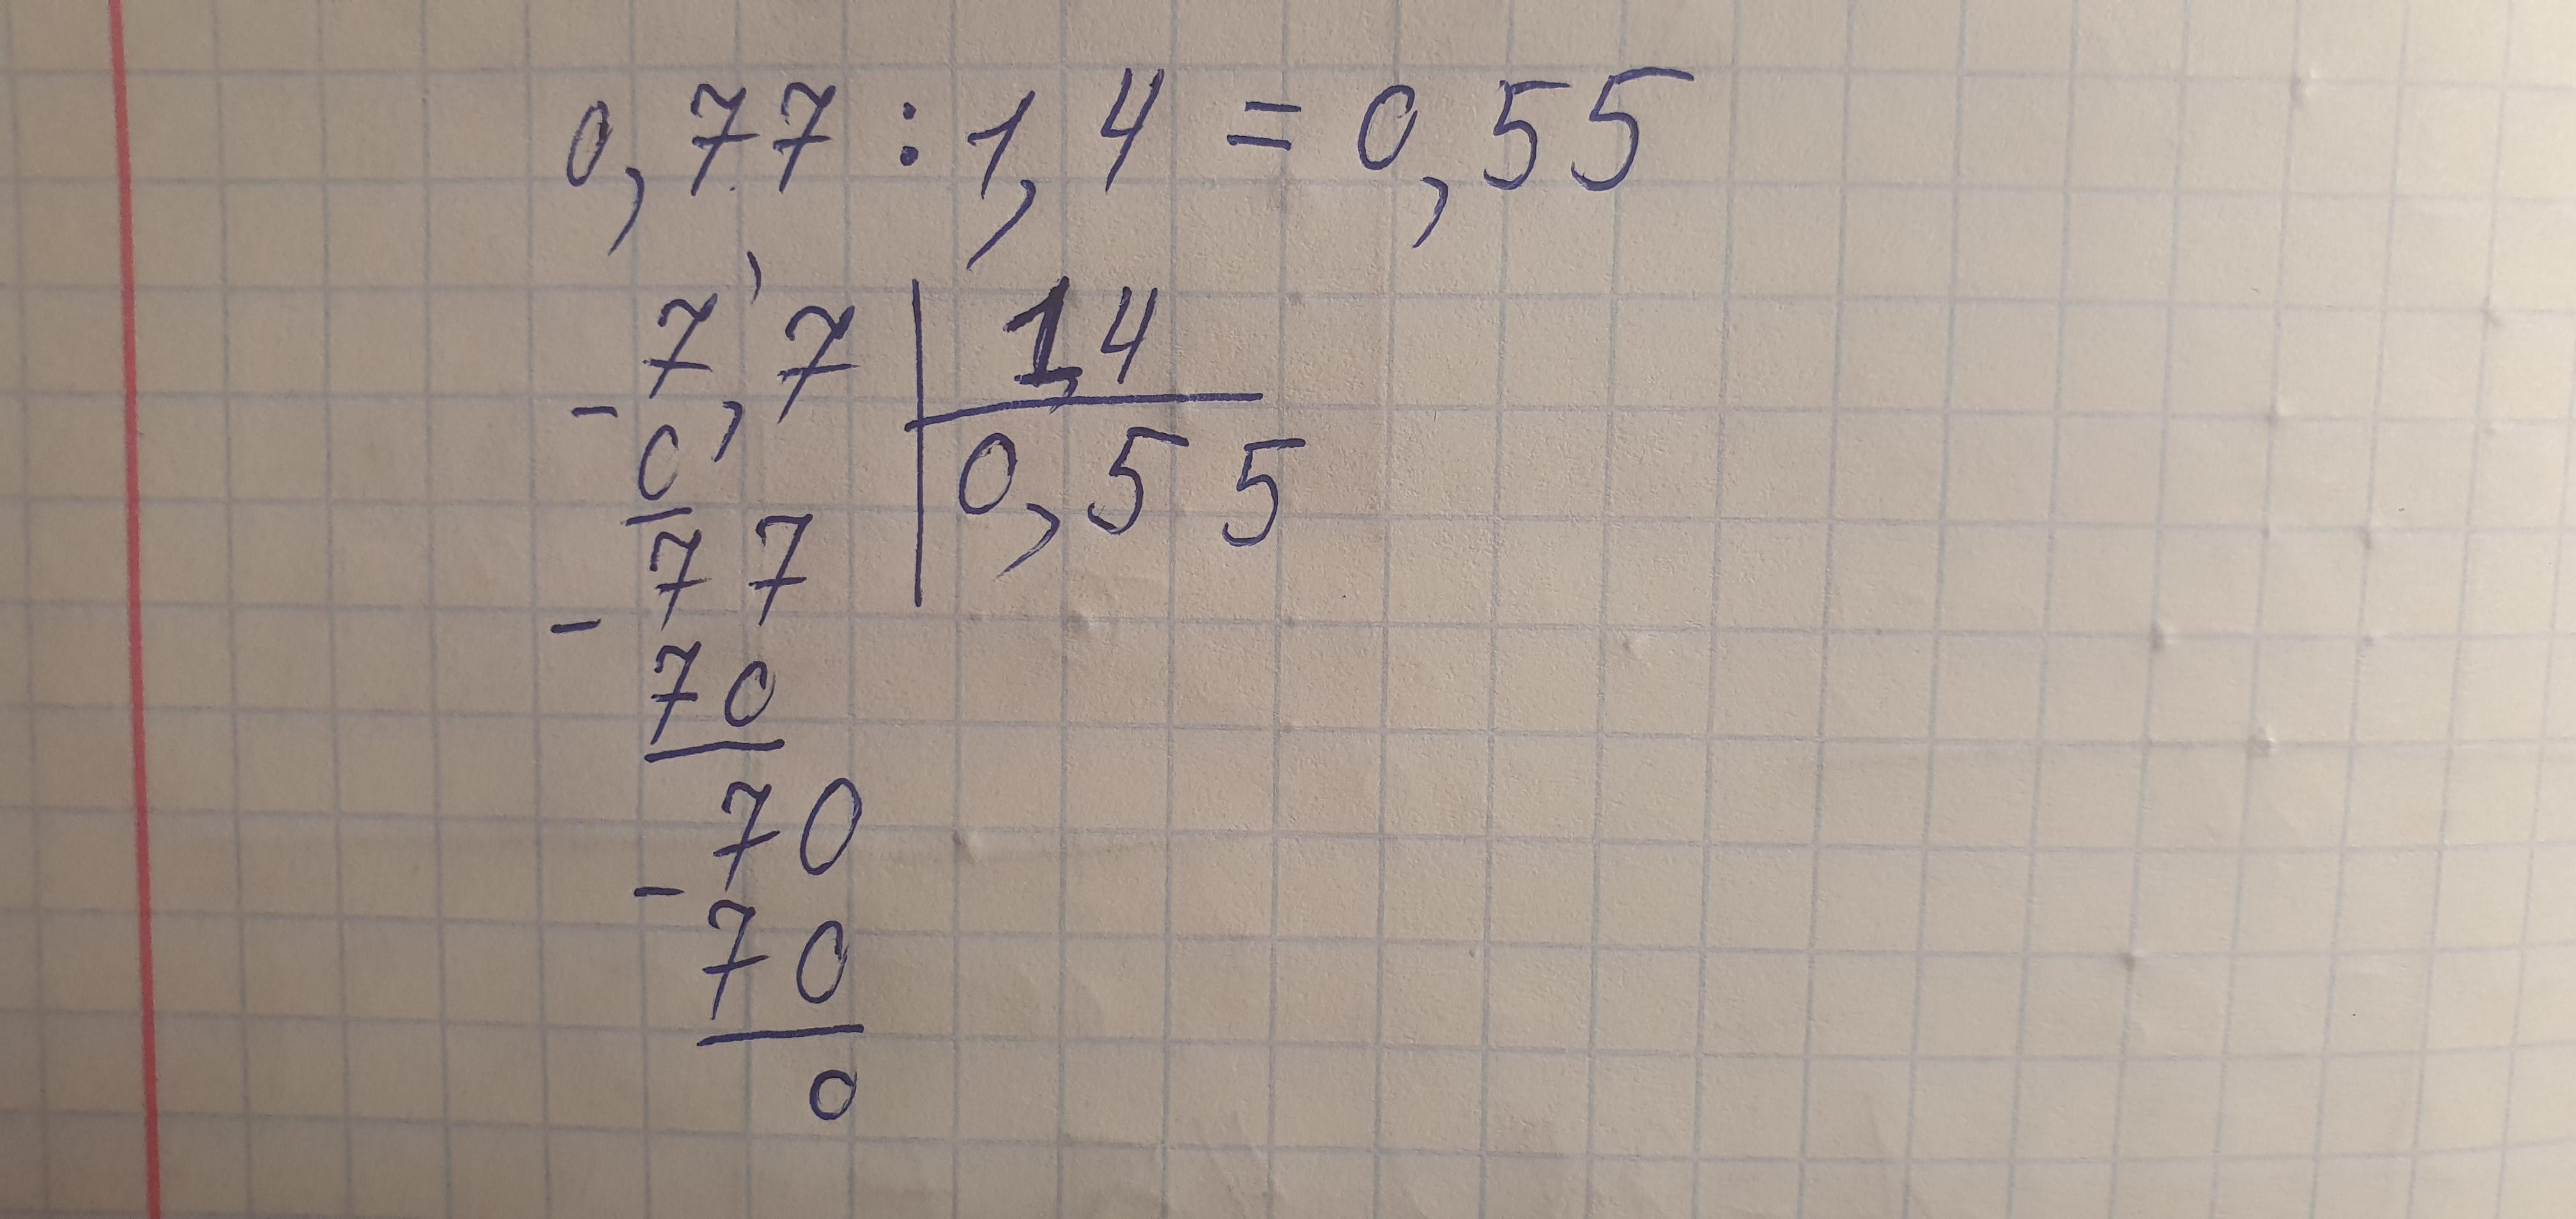 0,77 : 1,4 = 0,55
7,7 | 14
- 0 | 0,55
77
- 70
70
- 70
0